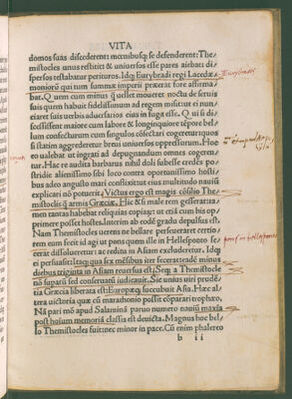 VITA
domos suas discederent: mœnibusq; se defenderent: The-
mistocles unus restitit & uniuersos esse pares aiebat: di-
spersos testabatur perituros. Idq; Eurybiadi regi Lacedæ-
moniorū qui tum summæ imperii præerat fore affirma-
bat. Quem cum minus q̄ uellet moueret noctu de seruis
suis quem habuit fidelissimum ad regem misit: ut ei nun-
ciaret suis uerbis aduersarios eius in fuga esse. Qui si di-
scessissent maiore cum labore & longinquiore tēpore bel-
lum confecturum: cum singulos cōsectari cogeretur: quos
si statim aggrederetur breui uniuersos oppressurum. Hoc
eo ualebat ut ingrati ad depugnandum omnes cogeren-
tur. Hac re audita barbarus nihil doli subesse credēs po-
stridie alienissimo sibi loco contra oportunissimo hosti-
bus adeo angusto mari conflixit: ut eius multitudo nauiū
explicari nō potuerit. Victus ergo est magis cōsilio The-
mistocli q̄ armis Græciæ. Hic & si male rem gesserat ta-
men tantas habebat reliquias copiaȝ: ut etiā cum his op-
primere posset hostes. Interim ab eodē gradu depulsus est.
Nam Themistocles uerens ne bellare perseueraret certio-
rem eum fecit id agi ut pons quem ille in Hellesponto fe-
cerat dissolueretur: ac reditu in Asiam excluderetur. Idq;
ei persuasit: itaq; qua sex mēsibus iter fecerat eadē minus
diebus triginta in Asiam reuersus est. Seq; a Themistocle
nō supatū sed conseruatū iudicauit. Sic unius uiri prudē-
tia Græcia liberata est: Europæq; succubuit Asia. Hæc al-
tera uictoria quæ cū marathonio possit cōparari trophæo.
Nā pari mō apud Salaminā paruo numero nauiū maxīa
post hoium memoriā classis est deuicta. Magnus hoc bel-
lo Themistocles fuit: nec minor in pace. Cū enim phalereo
b ii